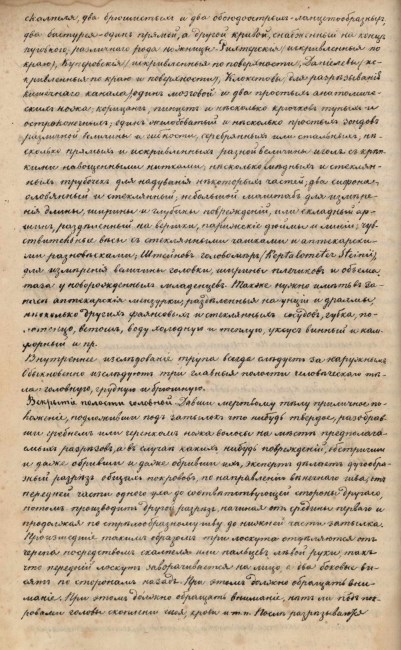 скалпеля, два брюшистых и два обоюдоострых ланцетообразных,
два бистурея один прямой, а другой кривой, снабженный на конце
пуговкою, различного рода ножницы: Рихтерския (искривленныя по
краю), Куперовския (искривленныя по поверхности), Даніелевы (ис-
кривленныя по краю и поверхности), Клокетовы, для разрезыванія
кишечнаго канала, один мозговой и два простых анатомиче-
ския ножа, корнцанг, пинцет и несколько крючков тупых и
остроконечных, один желобоватый и несколько простых зондов
различной величины и гибкости, серебряных или стальных, не-
сколько прямых и искривленных разной величины иголок с креп-
кими навощенными нитками, несколько медных и стеклян-
ных трубочек для надуванія некоторых частей, два сифона,
оловянный и стеклянный, небольшой масштаб для измере-
нія длины, ширины и глубины поврежденій, или складный ар-
шин, разделенный на вершки, парижские дюймы и линіи; чув-
ствительные весы с стеклянными чашками и аптекарски-
ми разновесками; Штейнов головомер (Keptalometer Steinii)
для измеренія величины головки, ширины плечиков и объема
таза у новорожденных младенцев. Также нужно иметь в за-
пасе аптекарския мензурки, разделенныя на унціи и драхмы,
несколько других фаянсовых и стеклянных сосудов, губка, по-
лотенцо, ветошь, воду холодную и теплую, уксус винный и кам-
форный и пр.
Внутреннее изследованіе трупа всегда следует за наружным.
Обыкновенно изследуют три главныя полости человеческаго те-
ла: головную, грудную и брюшную.
Вскрытіе полости головной. Давши мертвому телу приличное по-
ложеніе, подложивши под затылок что нибудь твердое, разобрав-
ши гребнем или черенком ножа волосы на месте предполага-
емых разрезов, а в случае каких нибудь поврежденій, обстригши
и даже обривши и даже обривши их, эксперт делает дугообра-
зный разрез общих покровов, по направленію венечнаго шва, от
передней части одного уха до соответствующей стороны другаго,
потом производит другой разрез, начиная от средины перваго и
продолжая по стрелообразному шву до нижней части затылка.
Происшедшие таким образом три лоскута отделяются от
черепа посредством скалпеля или пальцев левой руки, так
что передней лоскут заворачивается на лицо, а два боковые ви-
сят по сторонам назад. При этом должно обращать вни-
маніе. При этом должно обращать вниманіе, нет ли под по-
кровами головы скопленія гноя, крови и т.п. После разрезывается